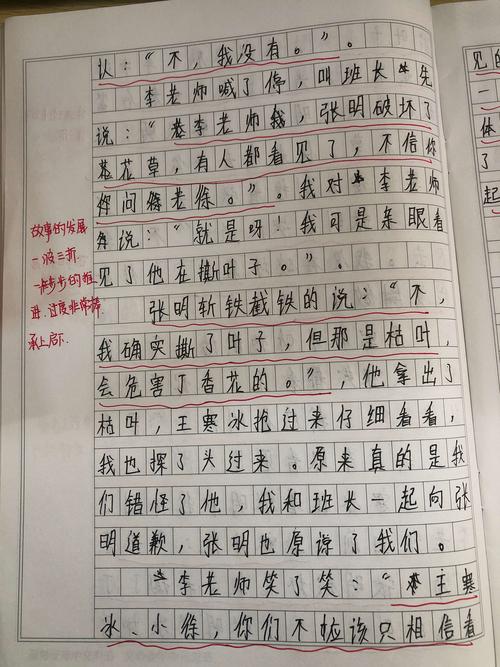 认："不，我没有。"。
李老师喊了停，叫班长先
说："李老师我，张明破坏了
花草，有人都看见了，不信你
问徐老徐。"。我对李老师
说："就是呀！我可是亲眼看
见了他在撕叶子。"。
张明斩铁截铁的说："不，
我确实撕了叶子，但那是枯叶，
会危害丁香花的。"，他拿出了
枯叶，王寒冰抢过来仔细看看，
我也探了头过来。原来真的是我
们错怪了他，我和班长一起向张
明道歉，张明也原谅了我们。
李老师笑了笑："王寒
冰、小徐，你们不应该只相信看
故事的发展
一波三折
一步步的推
进，过度非常棒
承上启下.
见的
一
体
了
起